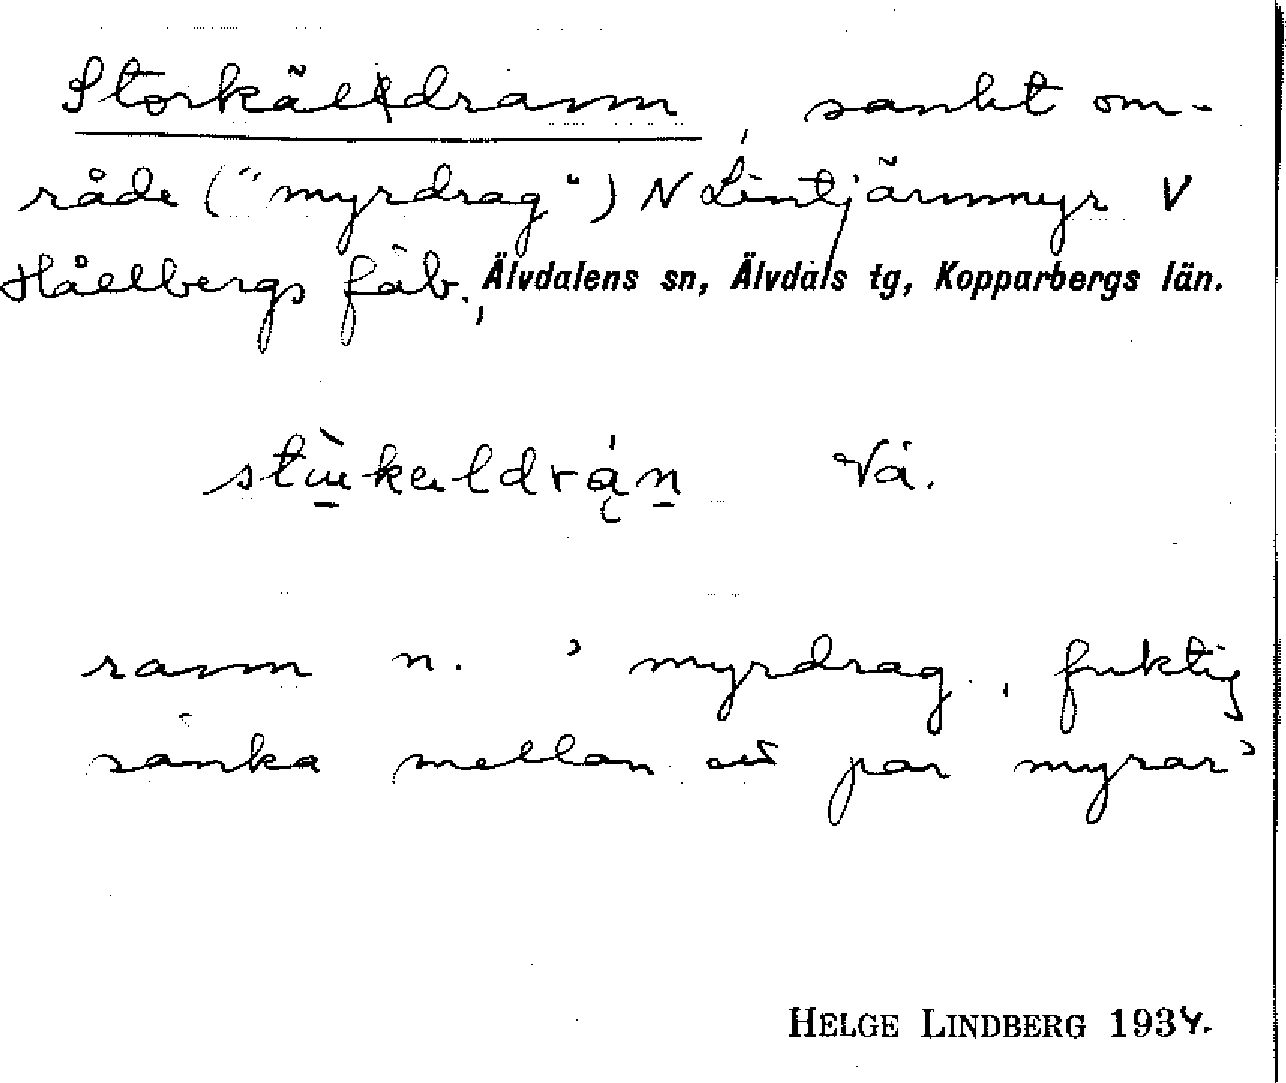 Storkälldrann, sankt om-
råde ("myrdrag") N Lintjärnmyr V
Hållbergs fäb., Älvdalens sn, Älvdals tg, Kopparbergs län.
Vå.
rann n. 'myrdrag, fuktig
sänka mellan ett par myrar'
HELGE LINDBERG 1934.